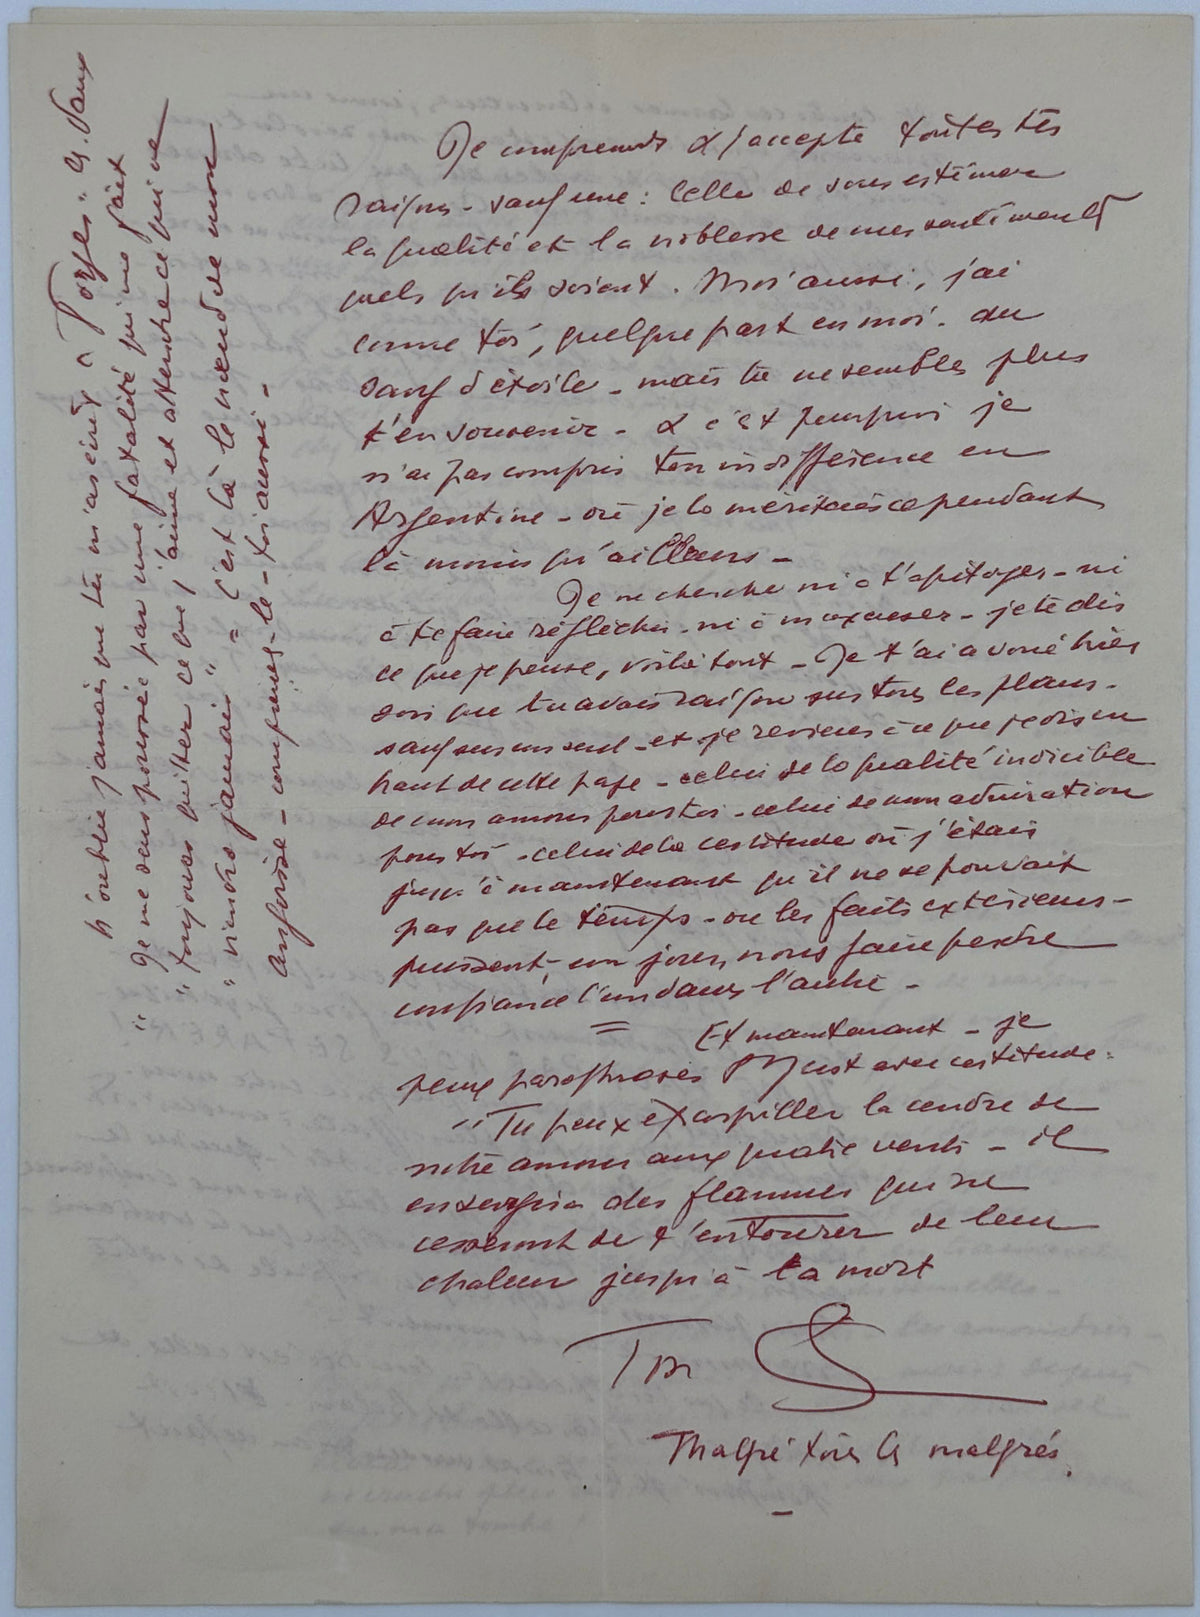 Je comprends & j'accepte toutes tes
raisons - sauf une : celle de sous estimer
la qualité et la noblesse de mes sentiments
quels qu'ils soient. Moi aussi, j'ai
comme toi, quelque part en moi - du
sang d'étoile - mais tu ne sembles plus
t'en souvenir - & c'est pourquoi je
n'ai pas compris ton indifférence en
Argentine - où je la méritais cependant
là moins qu'ailleurs -
Je ne cherche ni à t'apitoyer - ni
à te faire réfléchir - ni à m'excuser - je te dis
ce que je pense, voilà tout - Je t'ai avoué hier
soir que tu avais raison sur tous les plans -
sauf sur un seul - et je reviens à ce que je dis en
haut de cette page - celui de la qualité indicible
de mon amour pour toi - celui de mon admiration
pour toi - celui de la certitude où j'étais
jusqu'à maintenant qu'il ne se pouvait
pas que le temps - ou les faits extérieurs -
puissent, un jour, nous faire perdre
confiance l'un dans l'autre -
= Et maintenant - je
peux paraphraser avec certitude :
"Tu peux éxarpiller la cendre de
notre amour aux quatre vents - il
en surgira des flammes qui ne
cesseront de t'entourer de leur
chaleur jusqu'à ta mort
Ton S
Malgré tous les malgrés.
N'oublie jamais que tu m'as écrit à Forges - les Vaux
"Je me sens poussée par une fatalité qui me fait
"toujours quitter ce que j'aime et attendre ce qui ne
"viendra jamais" - C'est là le nœud de mon
angoisse - comprends-le - toi aussi -